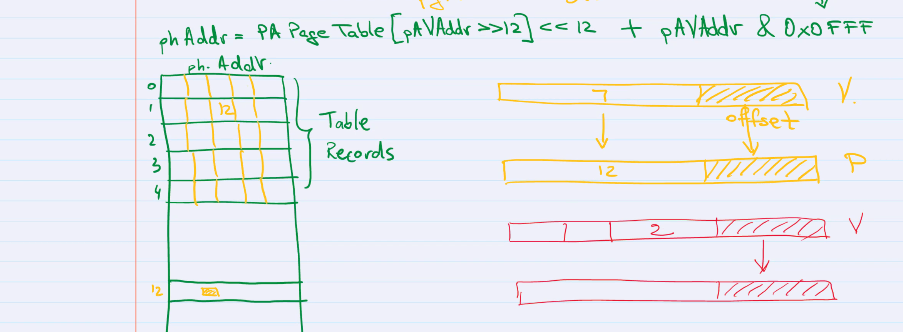 phAddr = PA Page Table [pAVAddr >>12] << 12 + pAVAddr & 0x0FFF
ph. Addr.
0
1 12
2
3
4
Table
Records
12
7 V.
offset
12 P
1 2 V